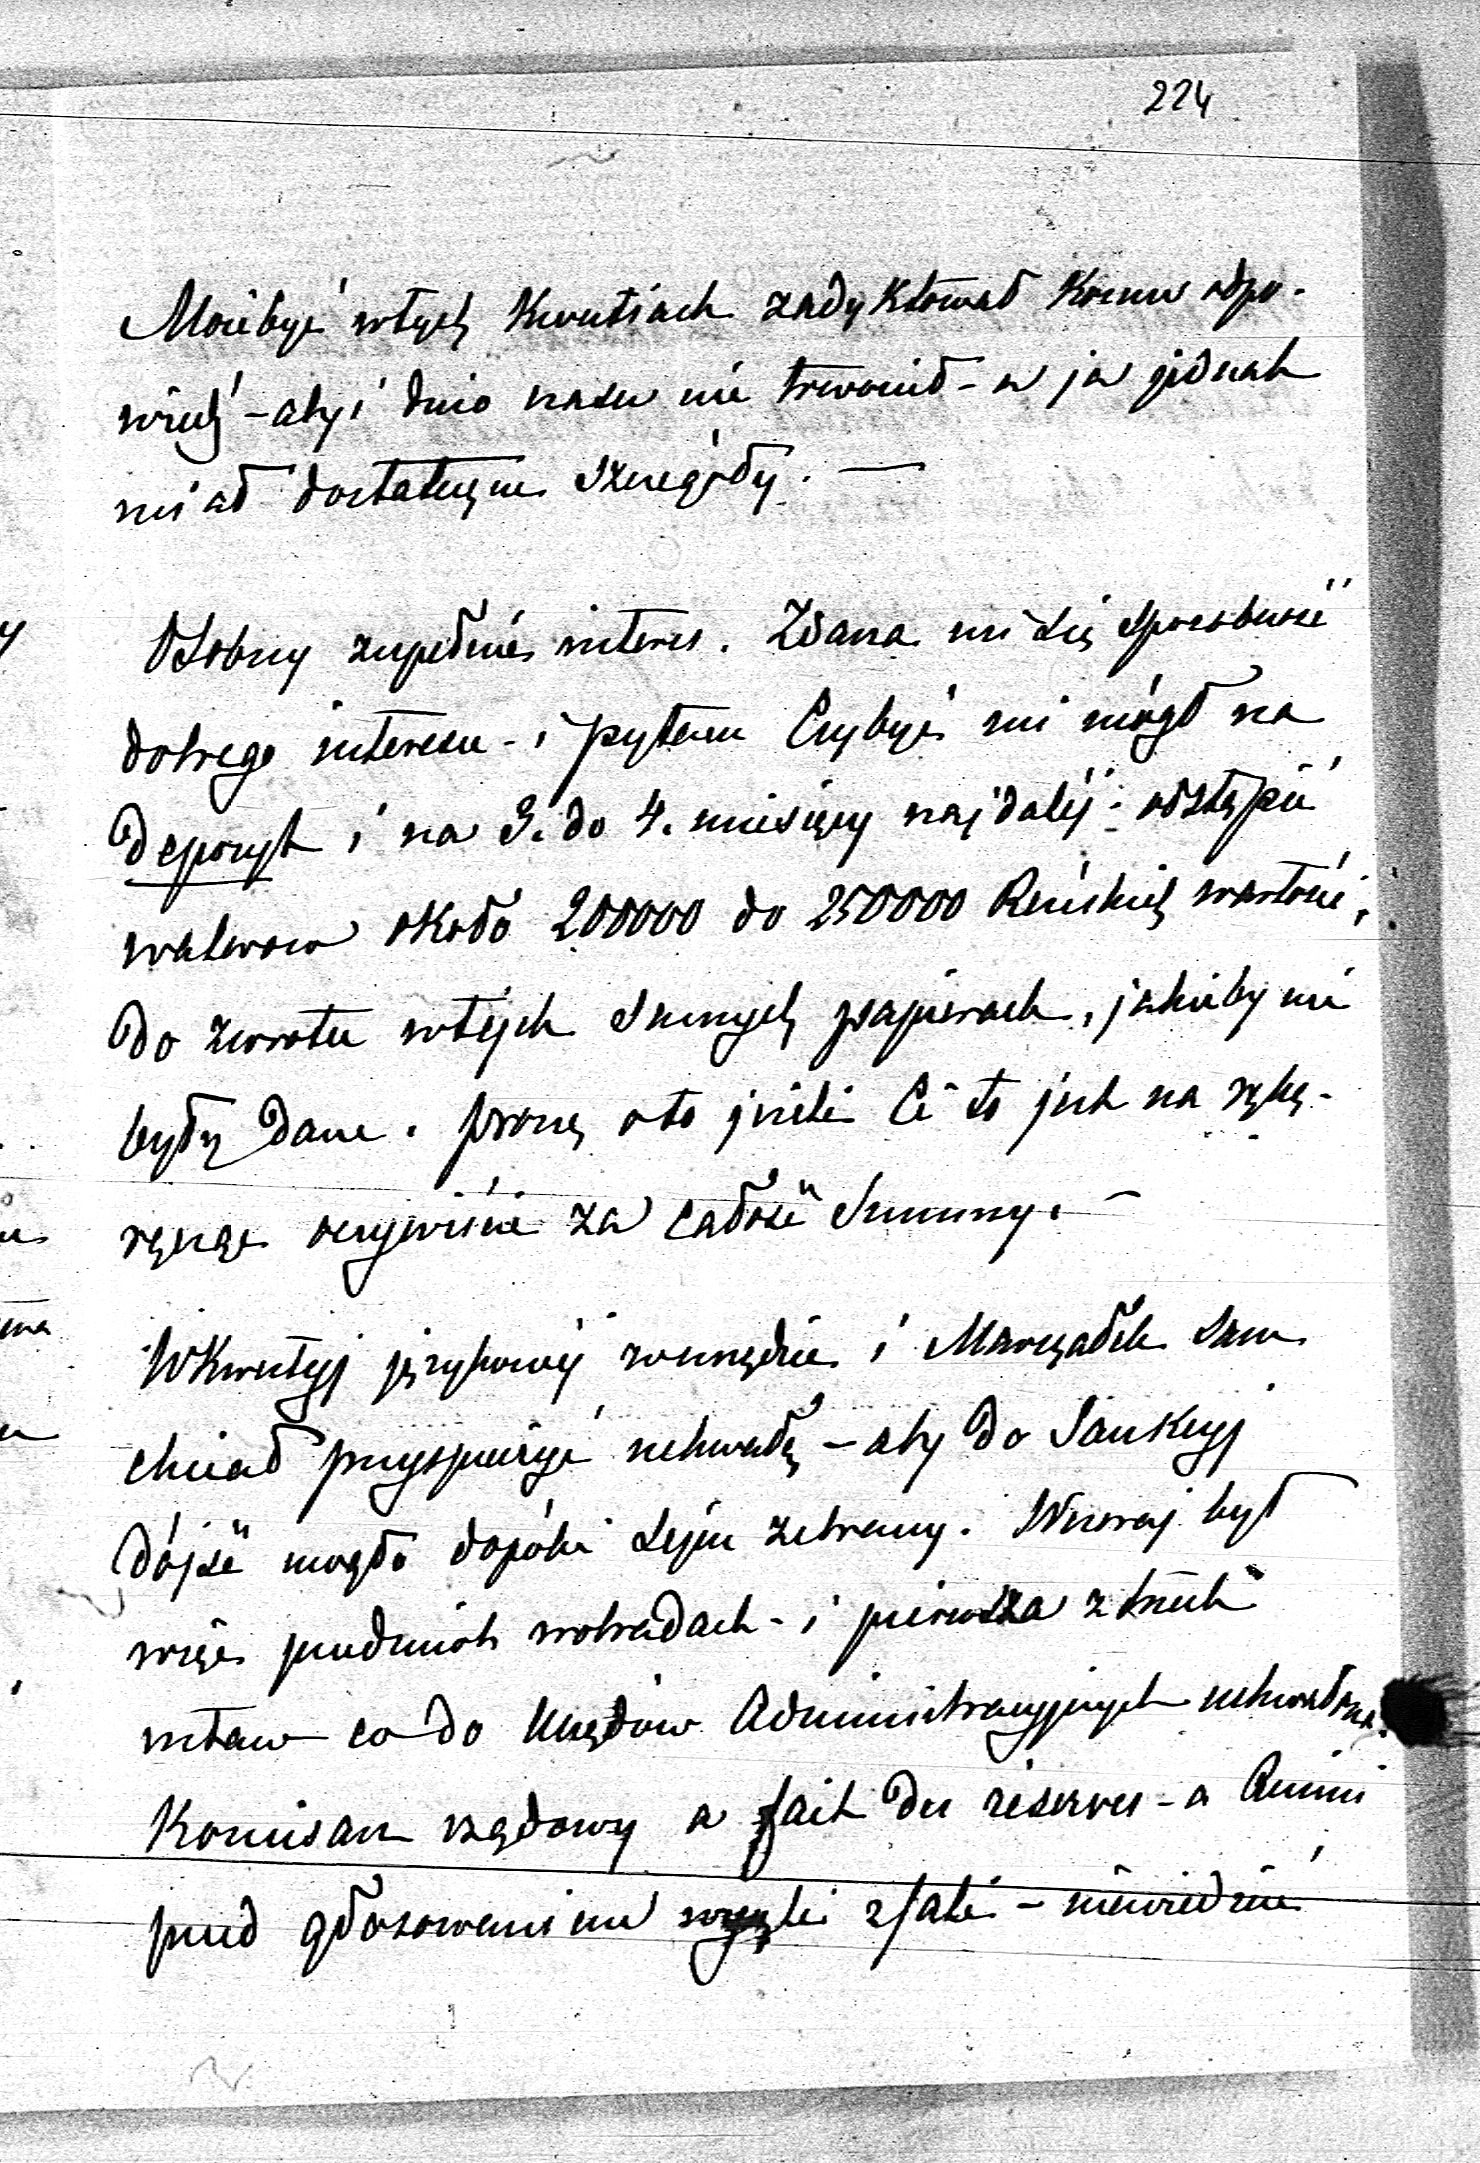 224
Możebyś wtych Kwestiach zadyktował Komu odpo-
wiedź - abyś dnio czasu nie trwonił - a ja jednak
miał dostateczne szczegóły. —
Osobny zupełnie interes. Zdarza mi się sposobność
dobrego interesu - i pytam Czybyś mi mógł na
Depozyt i na 3. do 4. miesięcy najdalej odstąpić
walorow około 200000 do 250000 Reńskich wartości,
Do zwrotu wtychże samych papierach, jakieby mi
były Dane. Proszę o to jeżeli Ci to jest na rękę -
ręczę oczywiście za całość Summy. —
W Kwestyj językowéj wewnętrznie i Marszałek sam
chciał przyspieszyć uchwałę - aby Do Sankcyj
Dójść mogło dopóki Sejm zebrany. Wczoraj był
więc przedmiot wobradach - i pierwsza z trzech
ustaw co do Urzędów Administracyjnych uchwalona.
Komisarz rządowy a fait des réserves - a Rusini
przed głosowaniem wyszli z sali - niewiedzieć